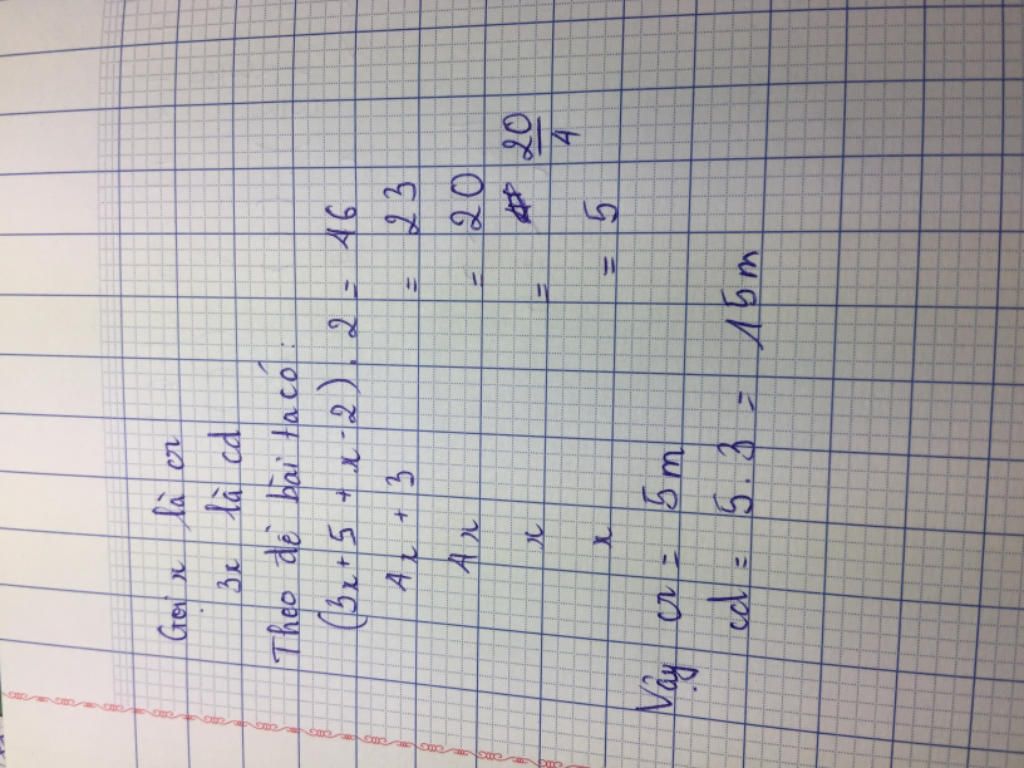 Gọi x là cr
3x là cd
Theo đề bài ta có:
(3x + 5 + x - 2) . 2 = 46
4x + 3 = 23
4x = 20
x = 20/4
x = 5
Vậy cr = 5m
cd = 5.3 = 15m